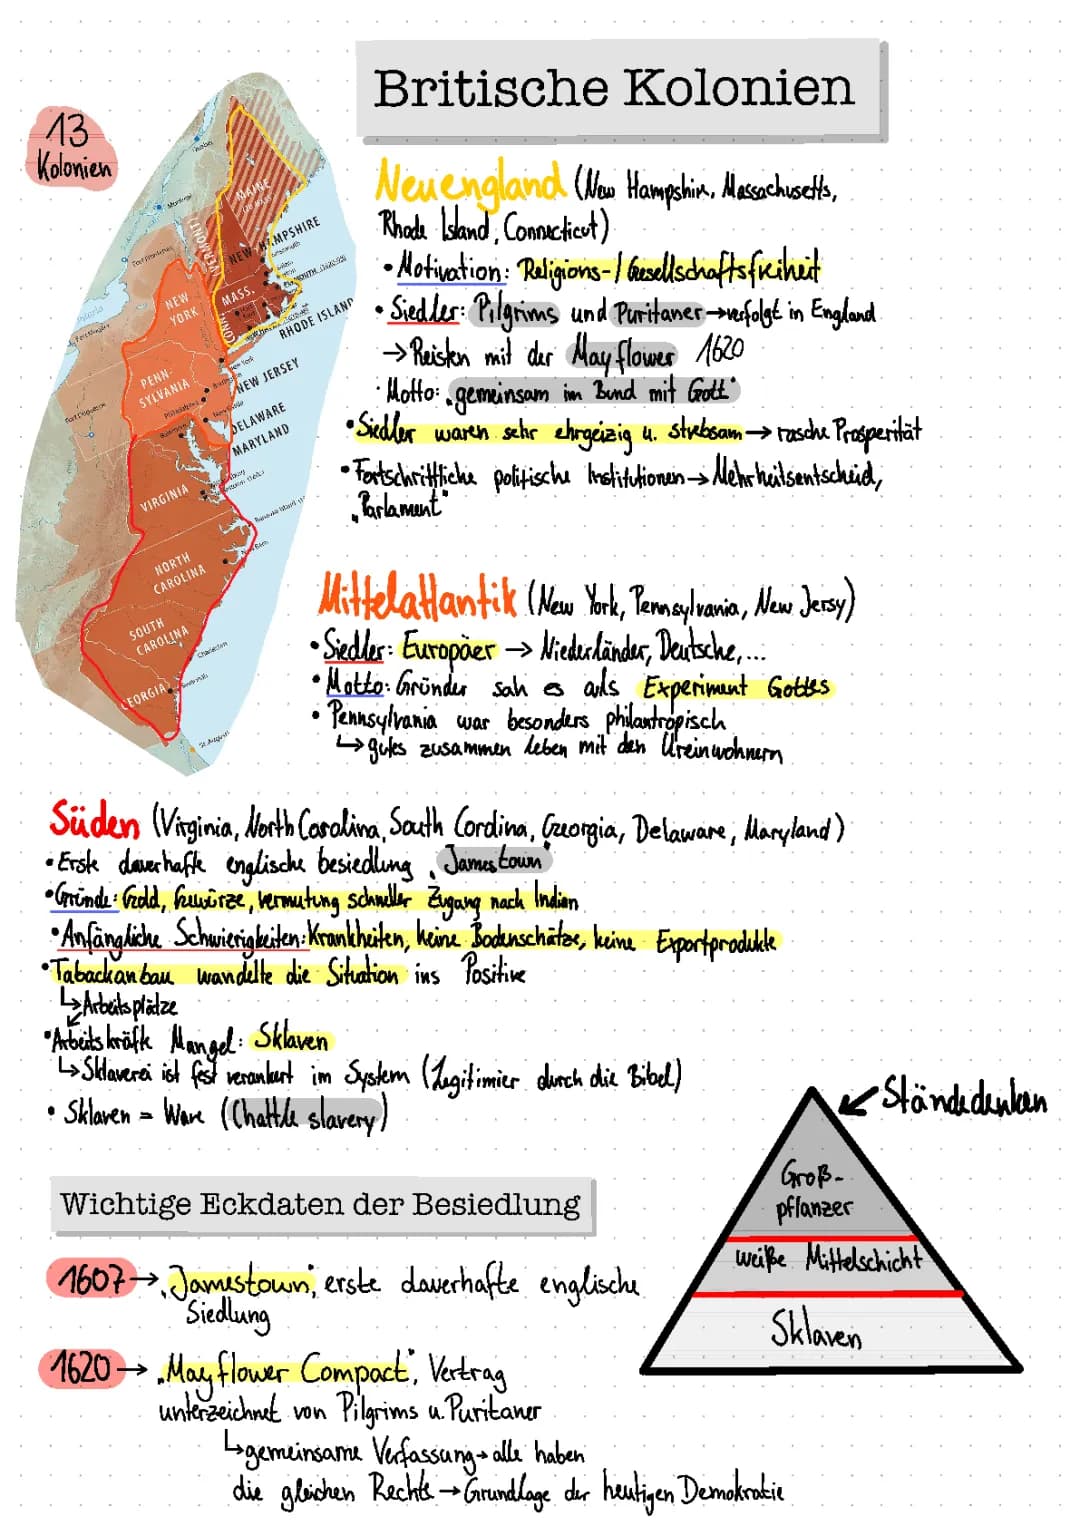 Britische Kolonien
13
Kolonien
Neuengland (New Hampshire, Massachusetts,
Rhode Island, Connecticut)
• Motivation: Religions-/Gesellschaftsfreiheit
• Siedler: Pilgrims und Puritaner → verfolgt in England
→ Reisten mit der Mayflower 1620
· Motto: „gemeinsam im Bund mit Gott"
• Siedler waren sehr ehrgeizig u. strebsam → rasche Prosperität
• Fortschrittliche politische Institutionen → Mehrheitsentscheid,
„Parlament"
MAINE
(VERMONT)
NEW HAMPSHIRE
NEW
YORK
MASS.
CONN.
RHODE ISLAND
PENN-
SYLVANIA
NEW JERSEY
DELAWARE
MARYLAND
VIRGINIA
NORTH
CAROLINA
SOUTH
CAROLINA
Charleston
GEORGIA
Mittelatlantik (New York, Pennsylvania, New Jersy)
• Siedler: Europäer → Niederländer, Deutsche,...
• Motto: Gründer sah es als Experiment Gottes
• Pennsylvania war besonders philantropisch
↳ gutes zusammen leben mit den Ureinwohnern
Süden (Virginia, North Carolina, South Cordina, Georgia, Delaware, Maryland)
• Erste dauerhafte englische besiedlung „Jamestown"
• Gründe: Gold, Gewürze, vermutung schneller Zugang nach Indien
• Anfängliche Schwierigkeiten: Krankheiten, keine Bodenschätze, keine Exportprodukte
• Tabackanbau wandelte die Situation ins Positive
↳ Arbeitsplätze
• Arbeitskräfte Mangel: Sklaven
↳ Sklaverei ist fest verankert im System (Legitimier durch die Bibel)
• Sklaven = Ware (Chattle slavery)
← Ständedenken
Groß-
pflanzer
weiße Mittelschicht
Sklaven
Wichtige Eckdaten der Besiedlung
1607 → „Jamestown", erste dauerhafte englische
Siedlung
1620 → „Mayflower Compact", Vertrag
unterzeichnet von Pilgrims u. Puritaner
↳ gemeinsame Verfassung → alle haben
die gleichen Rechte → Grundlage der heutigen Demokratie